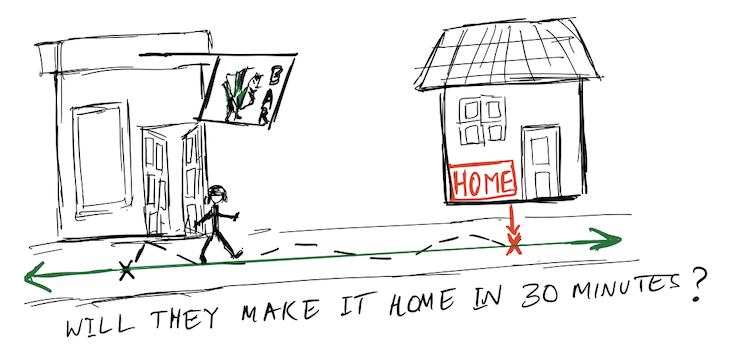 BAR
HOME
WILL THEY MAKE IT HOME IN 30 MINUTES?